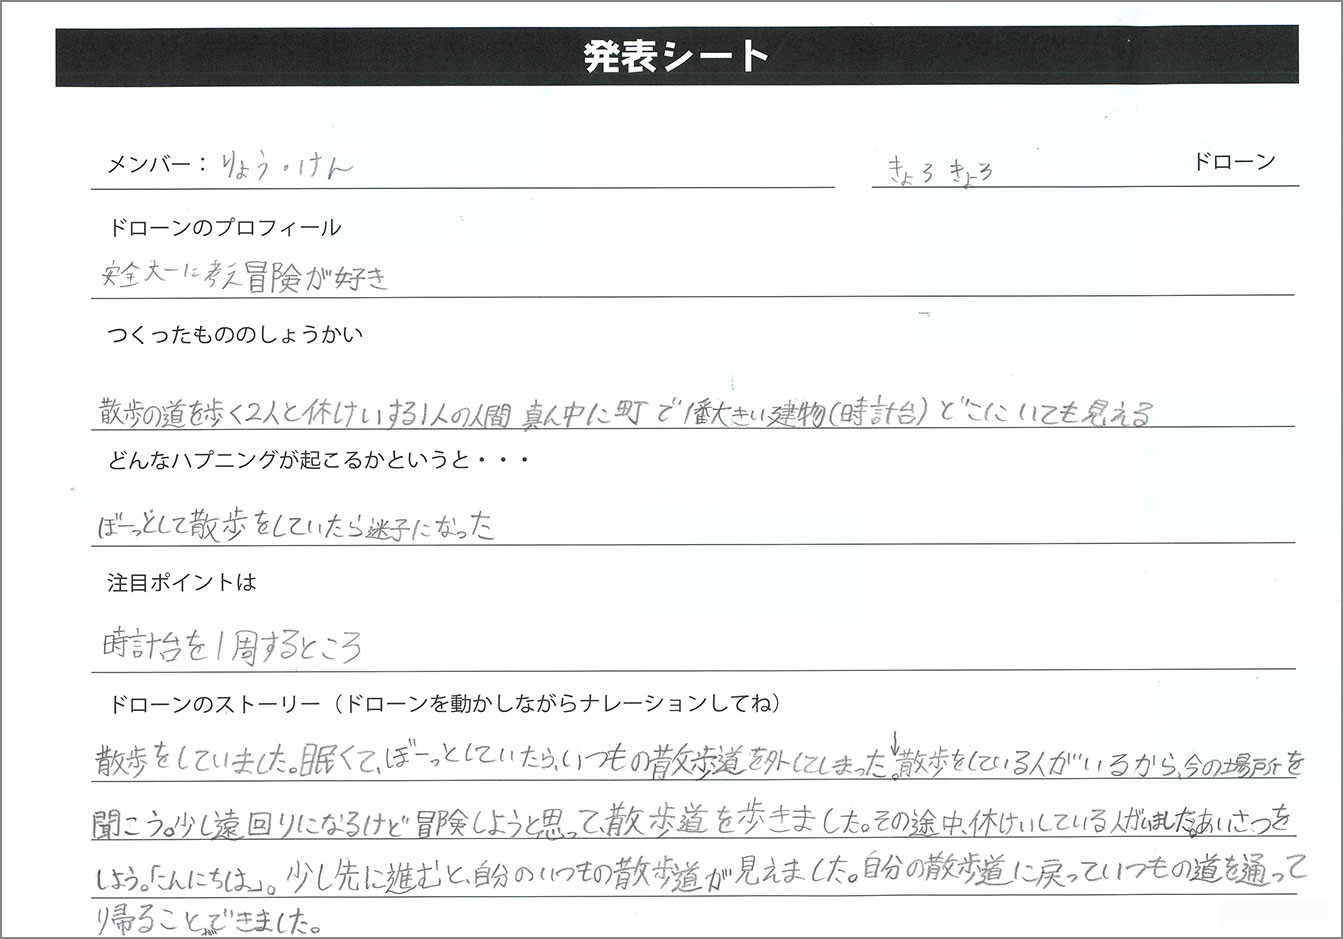 発表シート
メンバー： りょう・けん
きょろきょろ ドローン
ドローンのプロフィール
安全大一に考え冒険が好き
つくったもののしょうかい
散歩の道を歩く2人と休けいする1人の人間 真ん中に町で1番大きい建物(時計台) どこにいても見える
どんなハプニングが起こるかというと・・・
ぼーっとして散歩をしていたら迷子になった
注目ポイントは
時計台を1周するところ
ドローンのストーリー（ドローンを動かしながらナレーションしてね）
散歩をしていました。眠くて、ぼーっとしていたら、いつもの散歩道を外してしまった。↓散歩をしている人がいるから、今の場所を
聞こう。少し遠回りになるけど冒険しようと思って、散歩道を歩きました。その途中、休けいしている人がいました。あいさつを
しよう。「こんにちは」。少し先に進むと、自分のいつもの散歩道が見えました。自分の散歩道に戻っていつもの道を通って
り帰ることができました。